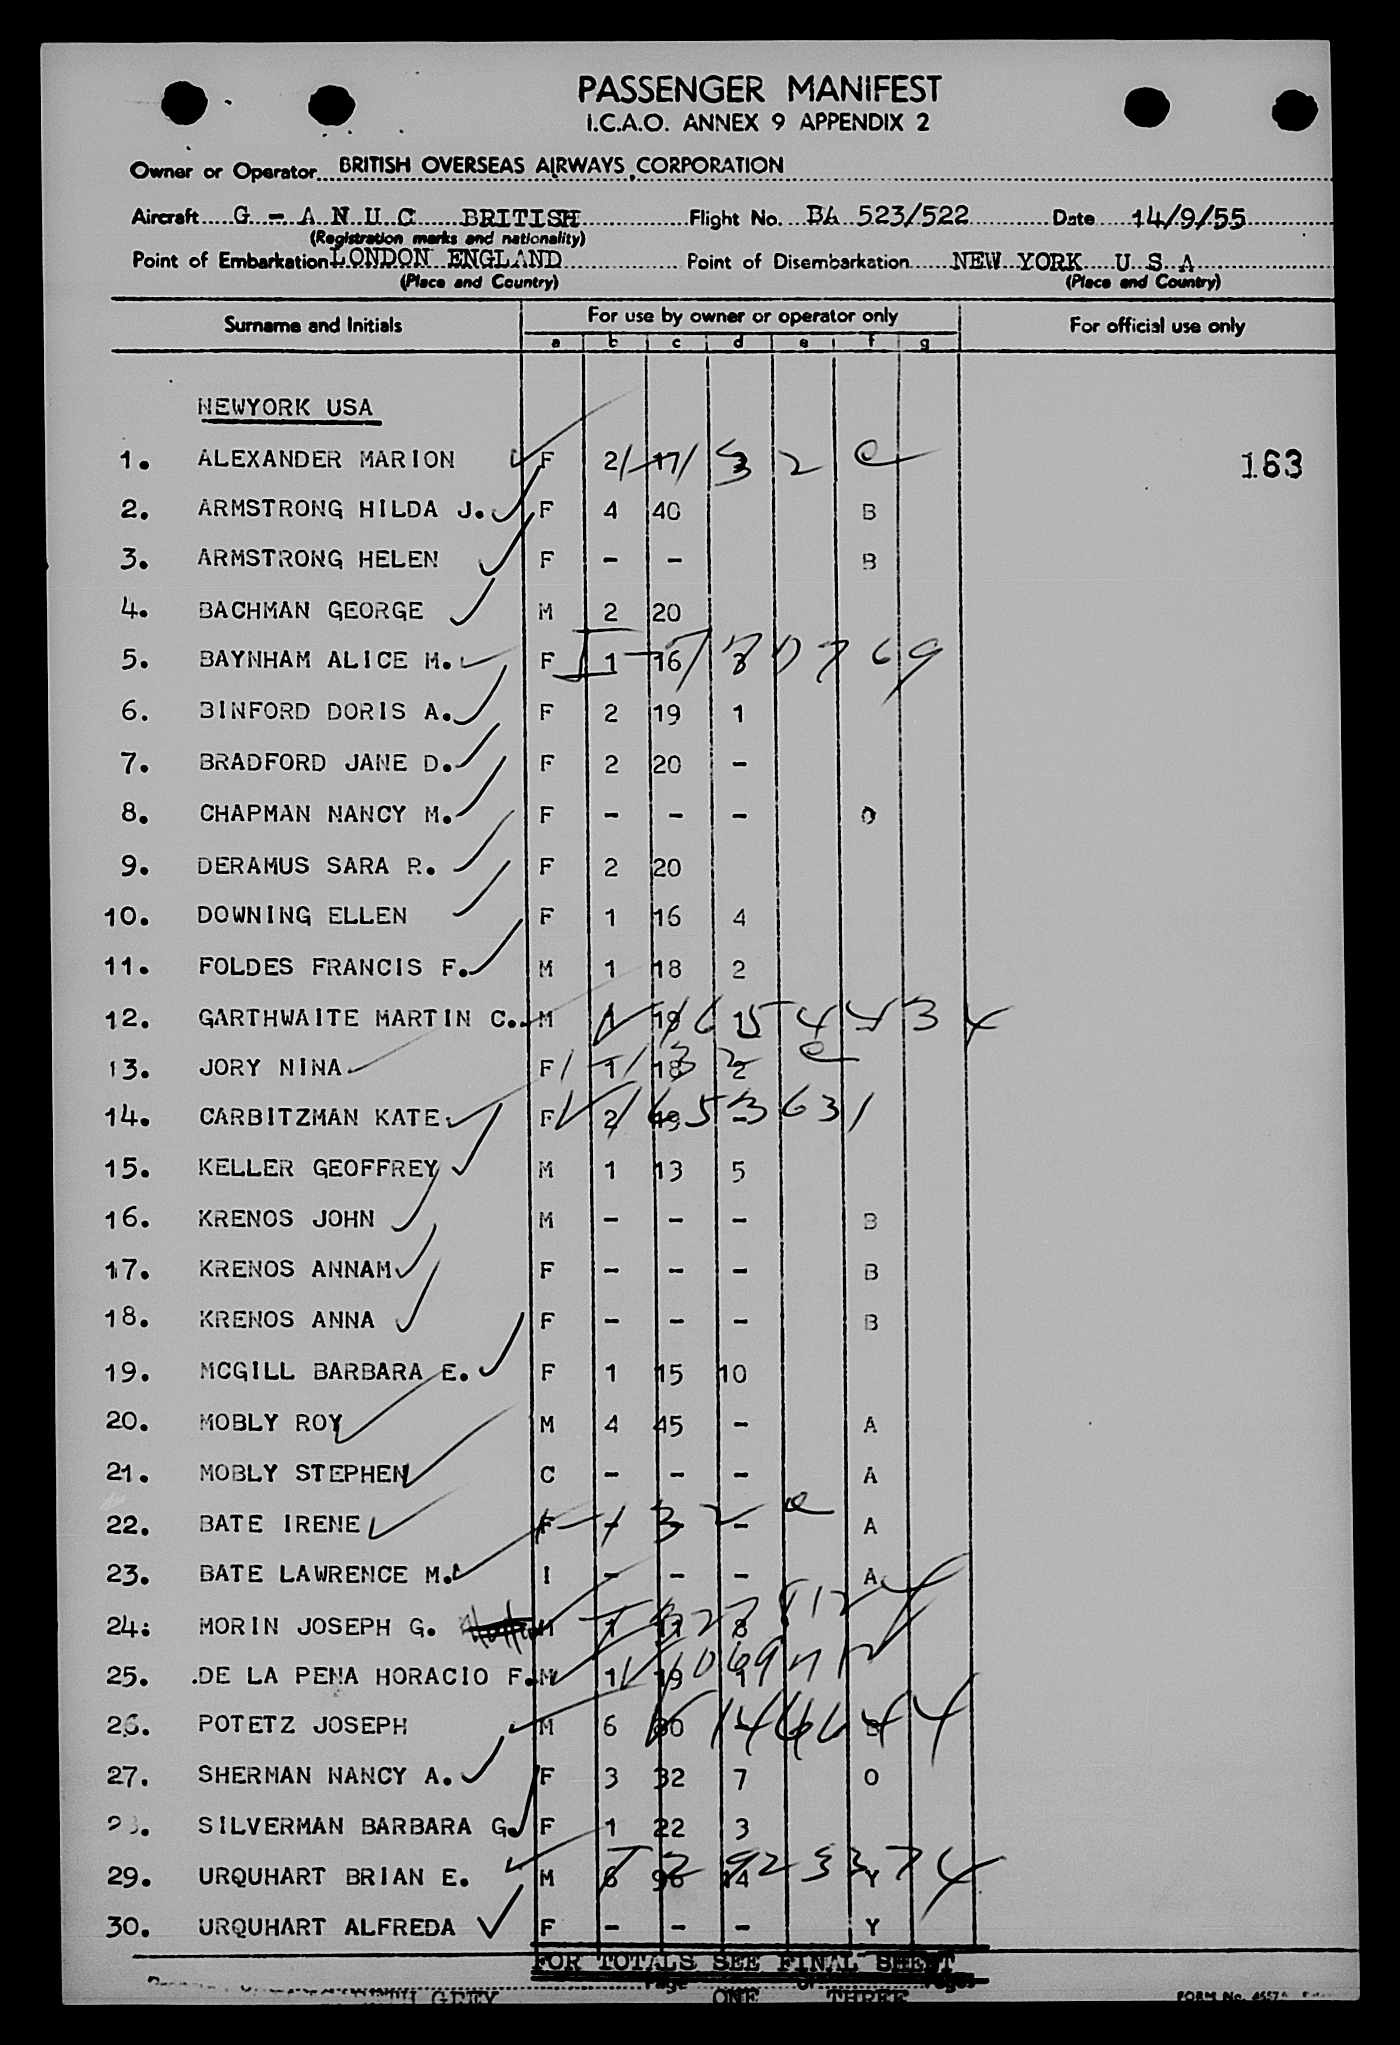 PASSENGER MANIFEST
I.C.A.O. ANNEX 9 APPENDIX 2
Owner or Operator BRITISH OVERSEAS AIRWAYS CORPORATION
Aircraft G - A N U C BRITISH Flight No. BA 523/522 Date 14/9/55
(Registration marks and nationality)
Point of Embarkation LONDON ENGLAND Point of Disembarkation NEW YORK U S A
(Place and Country) (Place and Country)
Surname and Initials For use by owner or operator only For official use only
a b c d e f g
NEWYORK USA
1. ALEXANDER MARION F 2 17 3 2 e 163
2. ARMSTRONG HILDA J. F 4 40 B
3. ARMSTRONG HELEN F - - B
4. BACHMAN GEORGE M 2 20
5. BAYNHAM ALICE M. F 1 16
6. BINFORD DORIS A. F 2 19 1
7. BRADFORD JANE D. F 2 20 -
8. CHAPMAN NANCY M. F - - - O
9. DERAMUS SARA R. F 2 20
10. DOWNING ELLEN F 1 16 4
11. FOLDES FRANCIS F. M 1 18 2
12. GARTHWAITE MARTIN C. M
13. JORY NINA F 1 18 2
14. CARBITZMAN KATE F 2
15. KELLER GEOFFREY M 1 13 5
16. KRENOS JOHN M - - - B
17. KRENOS ANNAM F - - - B
18. KRENOS ANNA F - - - B
19. MCGILL BARBARA E. F 1 15 10
20. MOBLY ROY M 4 45 - A
21. MOBLY STEPHEN C - - - A
22. BATE IRENE F - - - A
23. BATE LAWRENCE M. I - - - A
24: MORIN JOSEPH G. M 1 8
25. DE LA PENA HORACIO F. M 1 19 1
26. POTETZ JOSEPH M 6
27. SHERMAN NANCY A. F 3 32 7 O
28. SILVERMAN BARBARA G. F 1 22 3
29. URQUHART BRIAN E. M 6 14 Y
30. URQUHART ALFREDA F - - - Y
FOR TOTALS SEE FINAL SHEET
Page ONE of THREE Pages
FORM No.